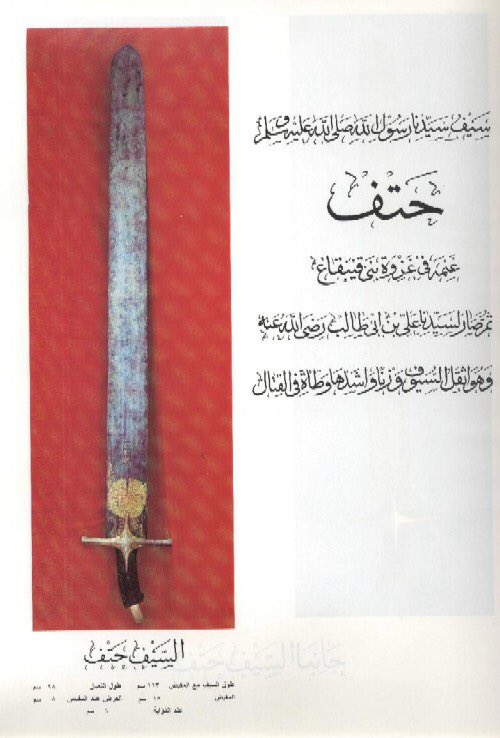 سَيْفُ سَيِّدِنَا رَسُولِ اللهِ صَلَّى اللهُ عَلَيْهِ وَسَلَّمَ
حَتْف
غَنِمَهُ فِي غَزْوَةِ بَنِي قَيْنِقَاع
ثُمَّ صَارَ لِسَيِّدِنَا عَلِي بْن أَبِي طَالِب رَضِيَ اللهُ عَنْهُ
وَهُوَ أَثْقَلُ السُّيُوفِ وَزْنًا وَأَشَدُّهَا وَطْأَةً فِي الْقِتَال
السَّيْفُ حَتْف
طول السيف مع المقبض ١١٣ سم طول النصل ٩٨ سم
المقبض ١٥ سم العرض عند المقبض ٨ سم
عند الذؤابة ٦ سم